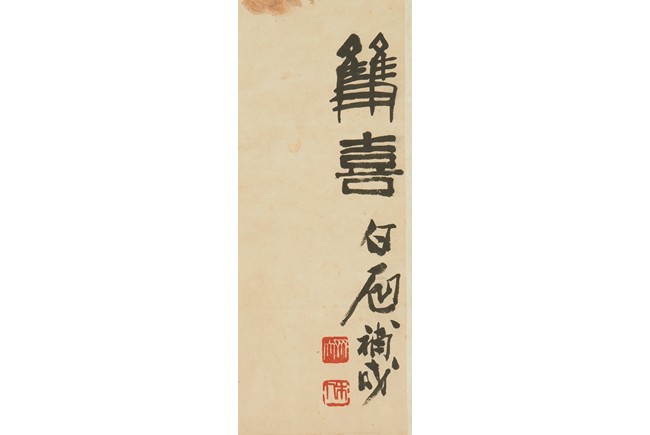 雙喜
白石補成